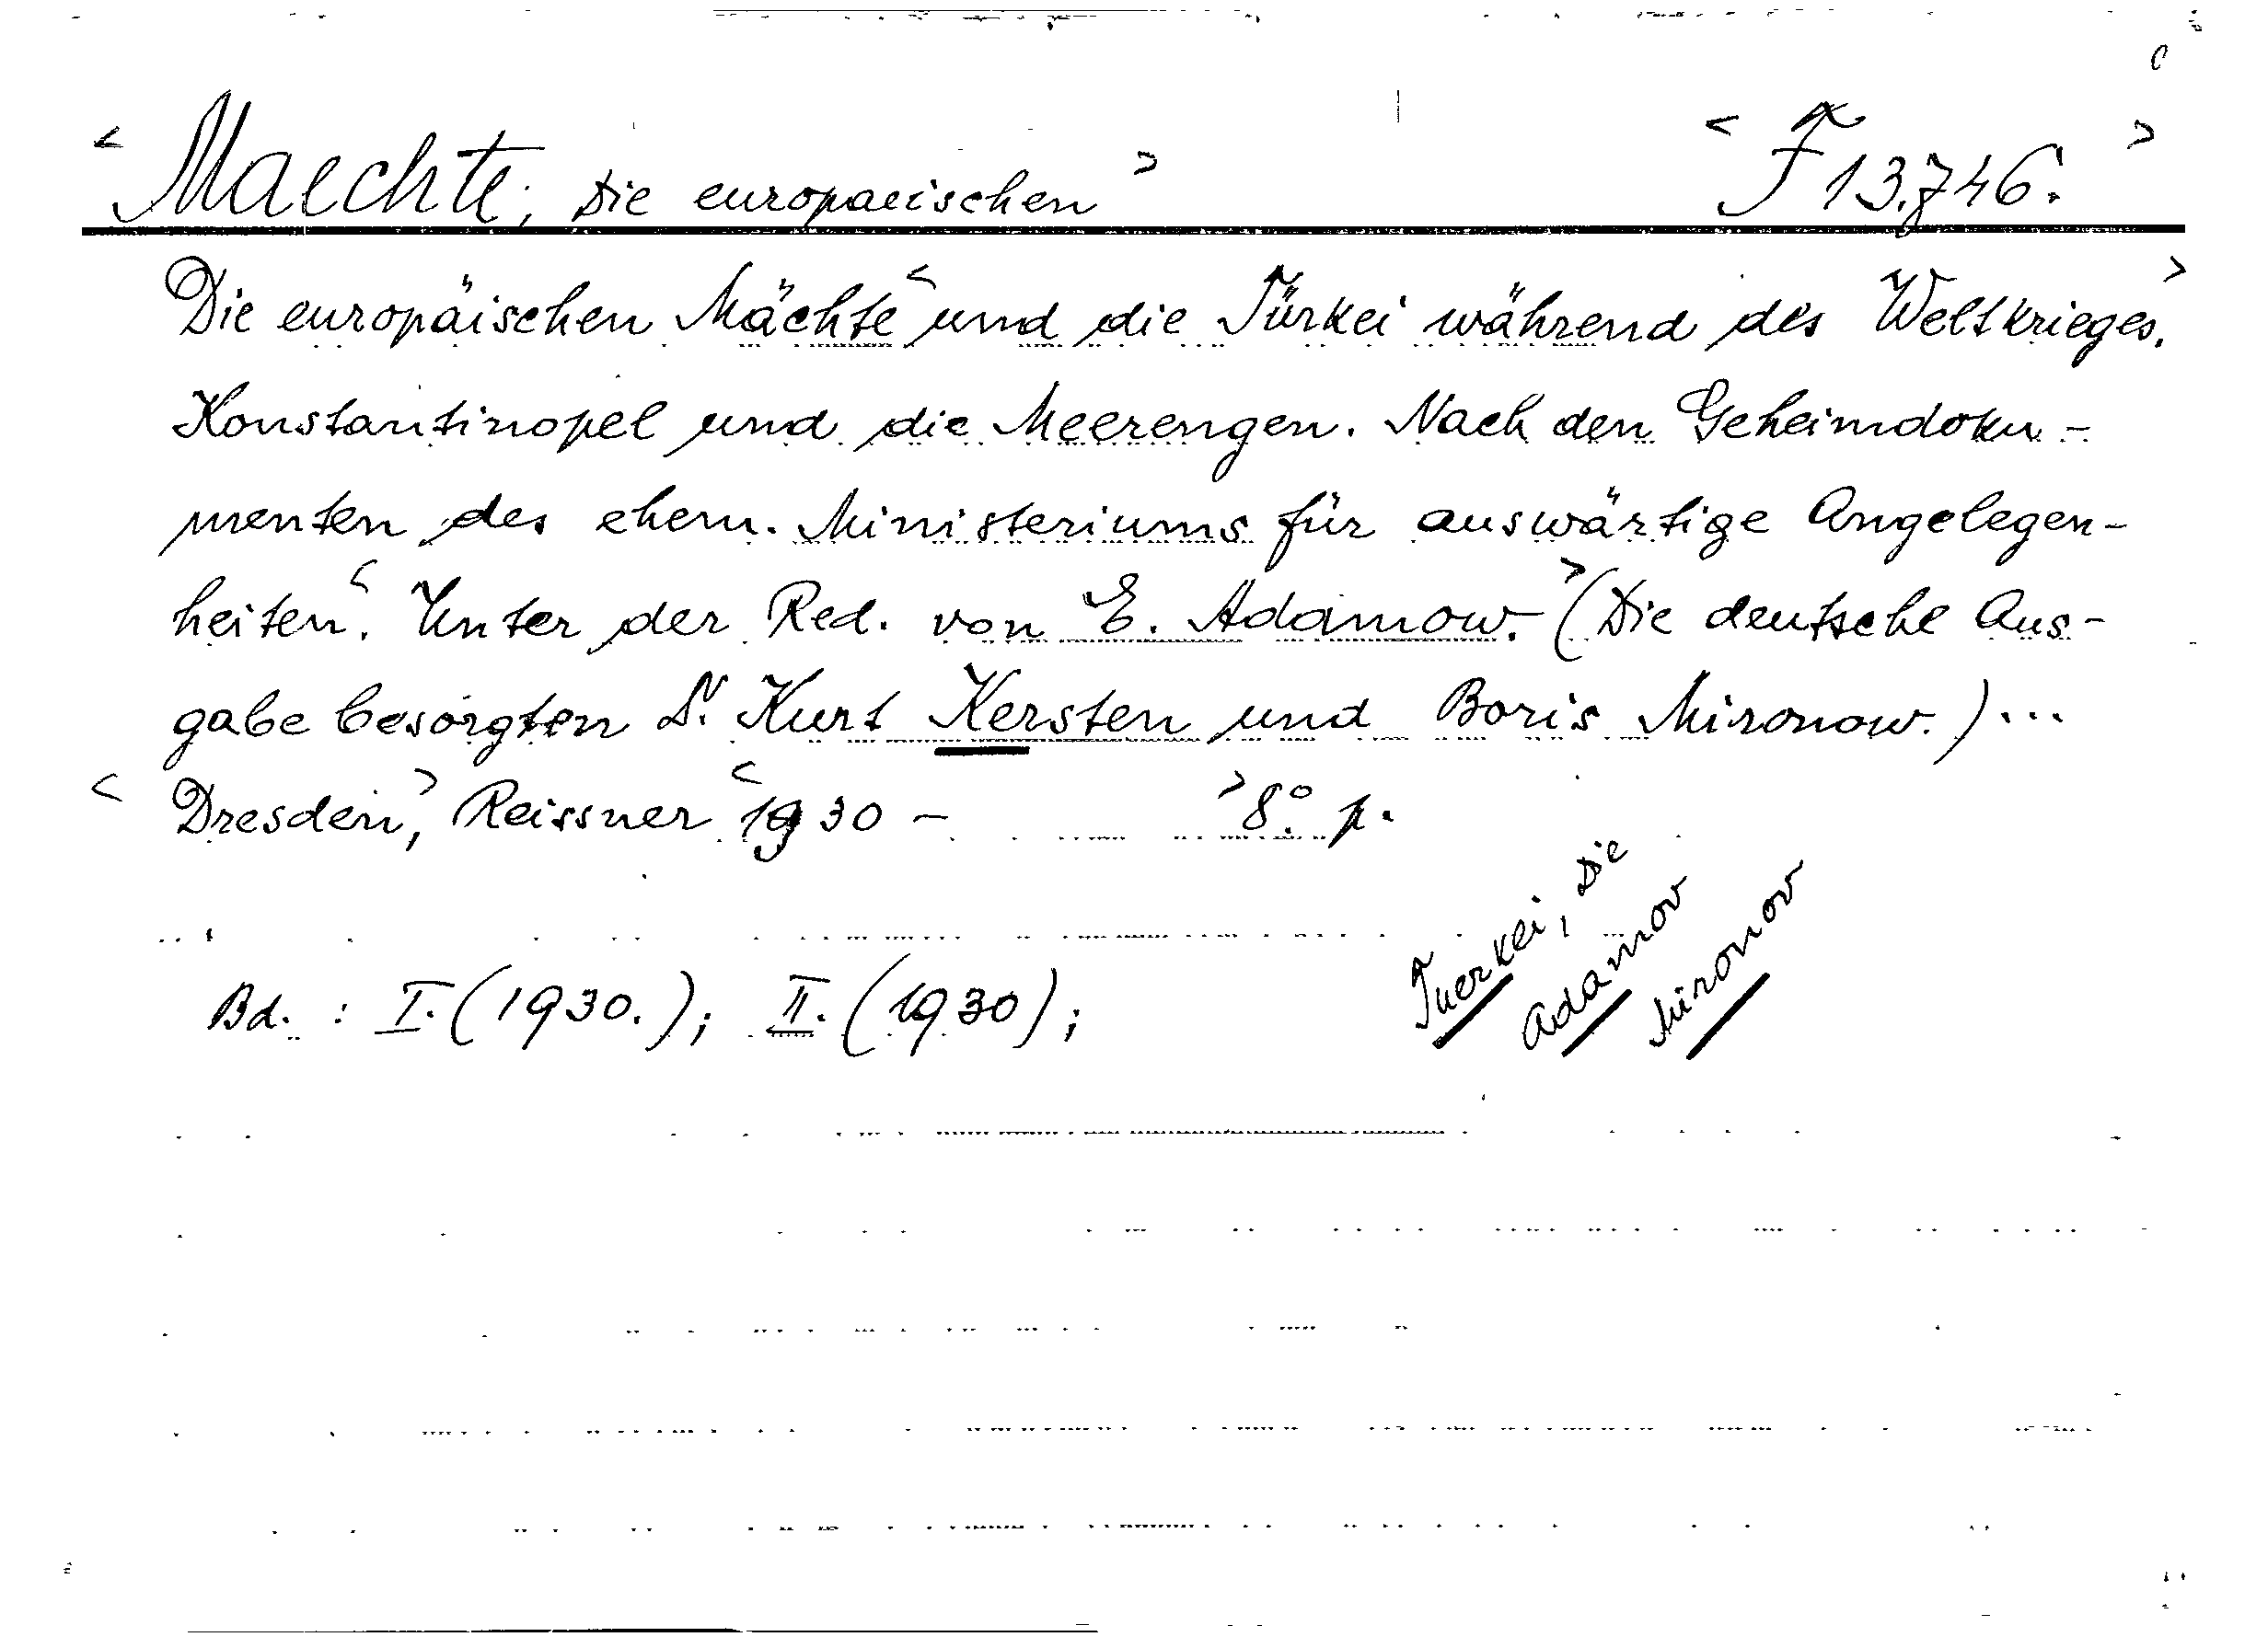 < Maechte, Die europaeischen > < F 13.746. >
Die europäischen Mächte < und die Türkei während des Weltkrieges. >
Konstantinopel und die Meerengen. Nach den Geheimdoku-
menten des ehem. Ministeriums für auswärtige Angelegen-
heiten. < Unter der Red. von E. Adamow. > (Die deutsche Aus-
gabe besorgten Dr Kurt Kersten und Boris Mironow.) ...
< Dresden, > Reissner < 1930 - > 8° p.
Bd. : I. (1930.); II. (1930);
Tuerkei, Die
Adamov
Mironov